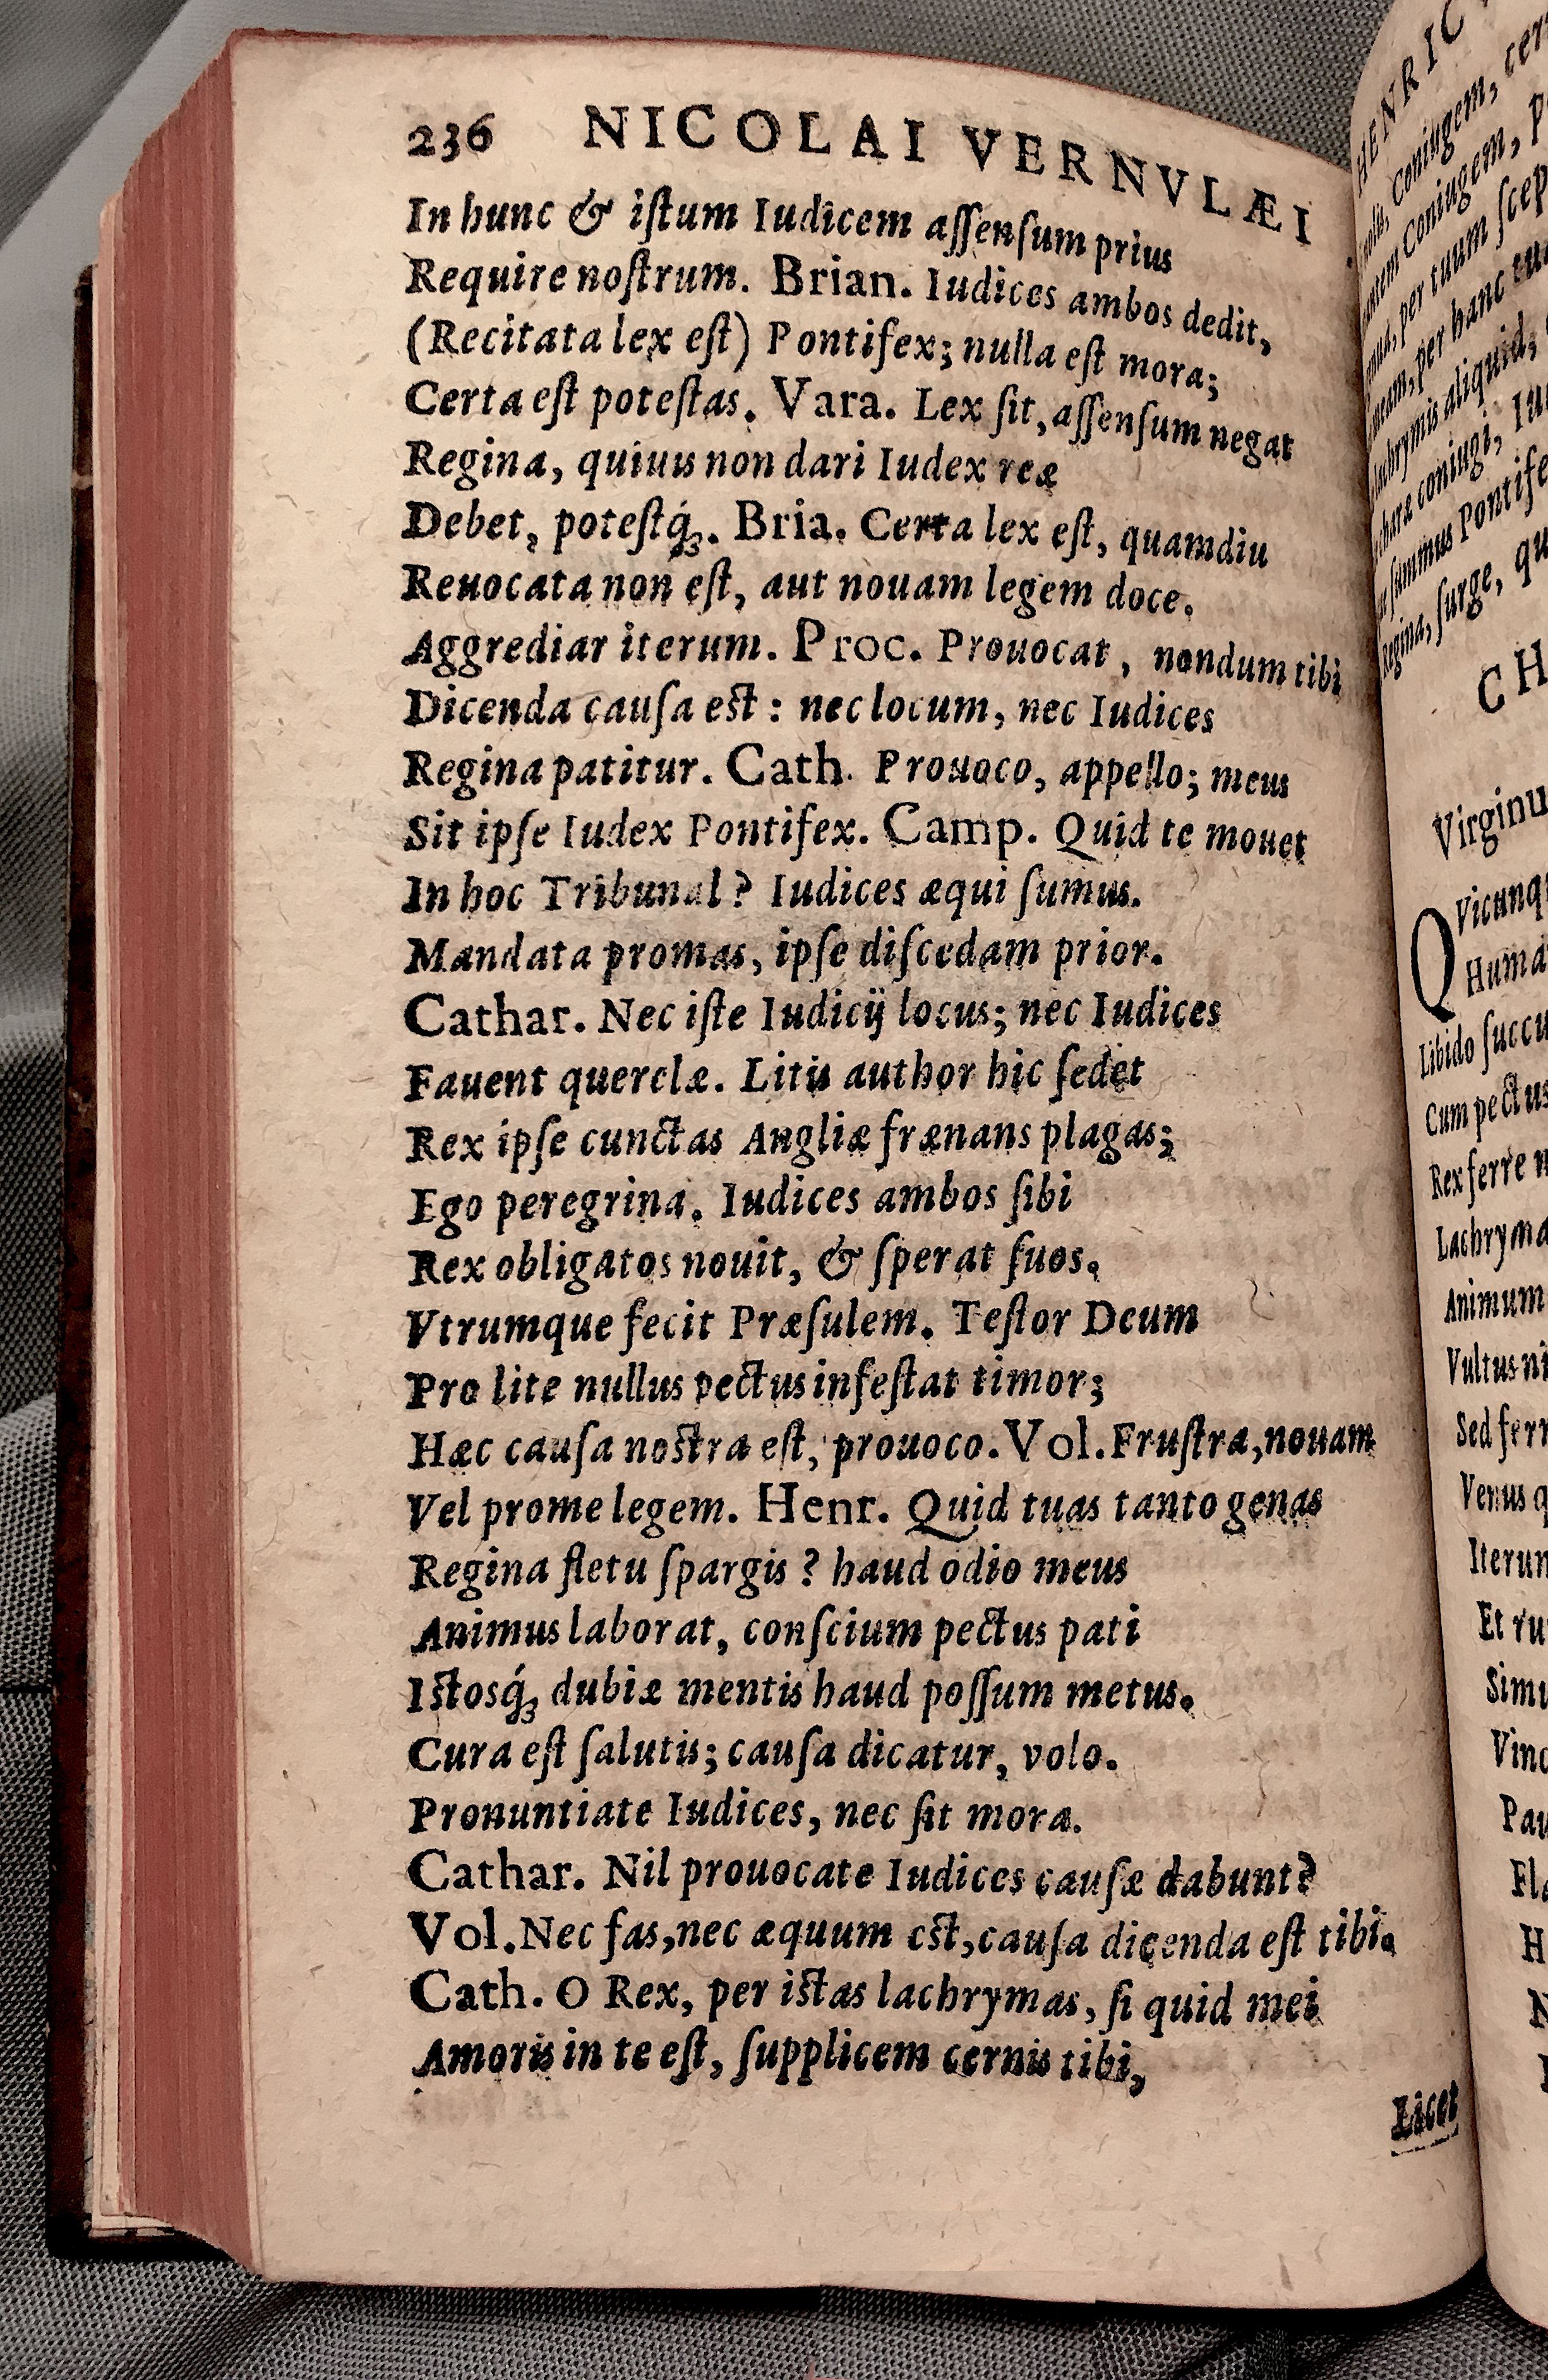 236 NICOLAI VERNVLÆI
In hunc & iſtum Iudicem aſſenſum prius
Require noſtrum. Brian. Iudices ambos dedit,
(Recitata lex eſt) Pontifex; nulla eſt mora;
Certa eſt poteſtas. Vara. Lex ſit, aſſenſum negat
Regina, quiuis non dari Iudex reæ
Debet, poteſtq́ꝫ. Bria. Certa lex eſt, quamdiu
Reuocata non eſt, aut nouam legem doce.
Aggrediar iterum. Proc. Prouocat, nondum tibi
Dicenda cauſa eſt: nec locum, nec Iudices
Regina patitur. Cath. Prouoco, appello; meus
Sit ipſe Iudex Pontifex. Camp. Quid te mouet
In hoc Tribunal? Iudices æqui ſumus.
Mandata promas, ipſe diſcedam prior.
Cathar. Nec iſte Iudicij locus; nec Iudices
Fauent querelæ. Litis author hic ſedet
Rex ipſe cunctas Angliæ frænans plagas;
Ego peregrina. Iudices ambos ſibi
Rex obligatos nouit, & ſperat ſuos.
Vtrumque fecit Præſulem. Teſtor Deum
Pro lite nullus pectus infeſtat timor;
Hæc cauſa noſtra eſt, prouoco. Vol. Fruſtra, nouam
Vel prome legem. Henr. Quid tuas tanto genas
Regina fletu ſpargis? haud odio meus
Animus laborat, conſcium pectus pati
Iſtosq́ꝫ dubiæ mentis haud poſſum metus.
Cura eſt ſalutis; cauſa dicatur, volo.
Pronuntiate Iudices, nec ſit mora.
Cathar. Nil prouocatæ Iudices cauſæ dabunt?
Vol. Nec fas, nec æquum eſt, cauſa dicenda eſt tibi.
Cath. O Rex, per iſtas lachrymas, ſi quid mei
Amoris in te eſt, ſupplicem cernis tibi,
Licet
HENRIC
Coniugem,
Coniugem,
per tuum
per hanc
aliquid,
coniugi,
ſummus
Regina, ſurge,
CH
Libido
Cum pectus
Rex ferre
Animum
Vultus
Sed
Venus
Et